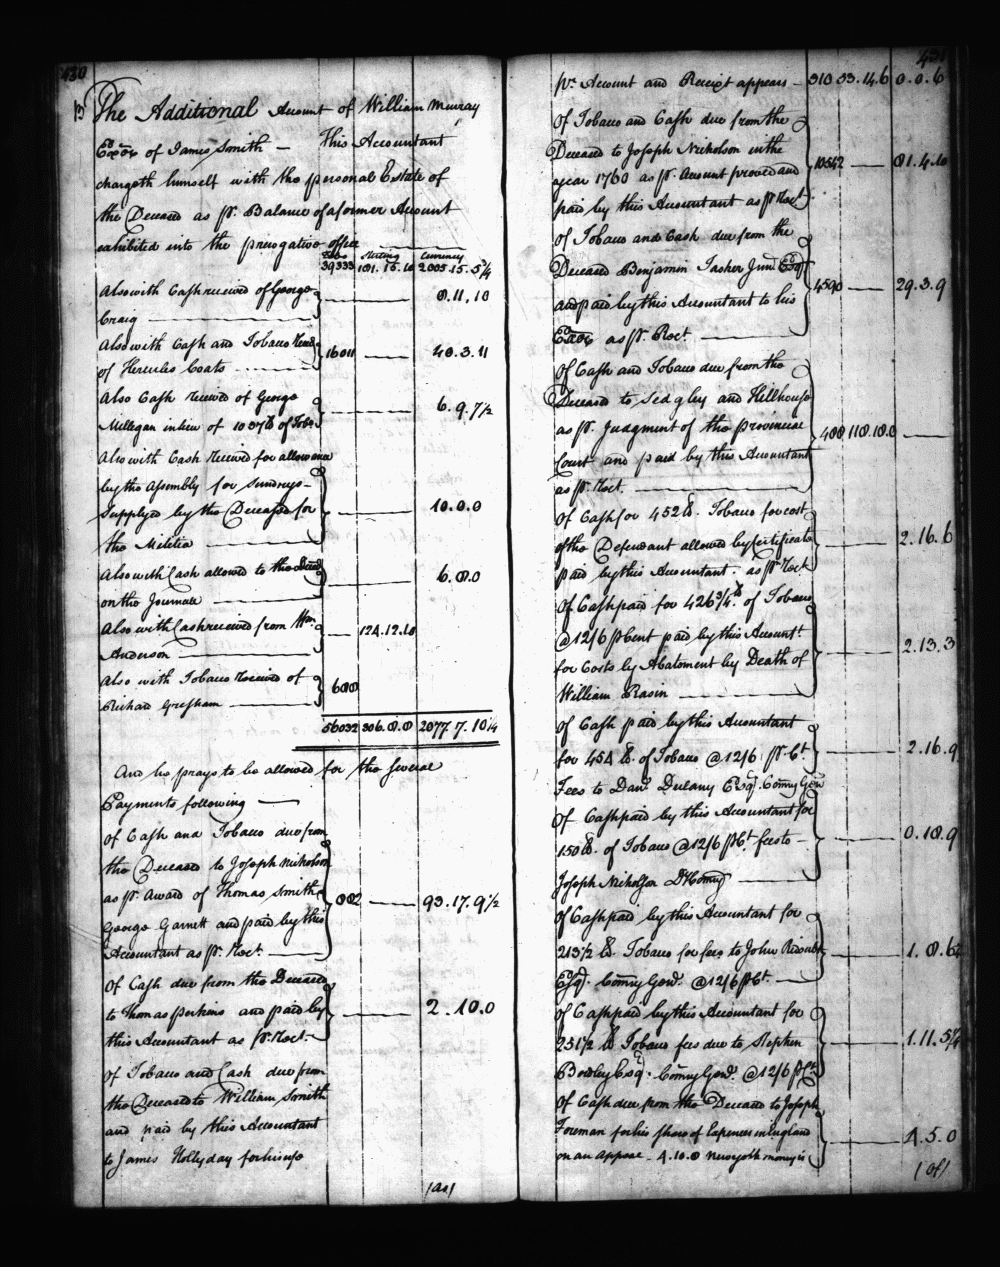 430
The Additional Account of William Murray
Exor of James Smith — This Accountant
chargeth himself with the personal Estate of
the Deceased as pr. Balance of a former Account
exhibited into the prerogative office
Tobo Sterling Currency
39333 101.15.10 2005.15.5 3/4
Also with Cash received of George
Craig — 8.11.10
Also with Cash and Tobacco Recd
of Hercules Coats — 16011 — 40.3.11
Also Cash received of George
Millegan in lieu of 1037 lb of Tobo — 6.9.7 1/2
Also with Cash Received for allowance
by the Assembly for sundrys —
Supplyed by the Deceased for
the Militia — 10.0.0
Also with Cash allowed to the Decd
on the Journals — 6.0.0
Also with Cash received from Wm
Anderson — 124.12.10
Also with Tobacco Received of
Richard Gresham — 600
56032 306.8.8 2077.7.10 1/4
And he prays to be allowed for the several
Payments following —
Of Cash and Tobacco due from
the Deceased to Joseph Nicholson
as pr. Award of Thomas Smith &
George Garnett and paid by this
Accountant as pr. Rect. — 882 — 93.17.9 1/2
Of Cash due from the Deceased
to Thomas Perkins and paid by
this Accountant as pr. Rect. — 2.10.0
Of Tobacco and Cash due from
the Deceased to William Smith
and paid by this Accountant
to James Hollyday for his use
/as/
431
pr. Account and Receipt appears — 310 33.14.6 0.0.6
Of Tobacco and Cash due from the
Deceased to Joseph Nicholson in the
year 1760 as pr. Account proved and
paid by this Accountant as pr. Rect — 10542 — 81.4.10
Of Tobacco and Cash due from the
Deceased Benjamin Tasker Junr. Esqr
and paid by this Accountant to his
Exors as pr. Rect. — 4590 — 29.3.9
Of Cash and Tobacco due from the
Deceased to Sedgley and Hillhouse
as pr. Judgment of the Provincial
Court and paid by this Accountant
as pr. Rect. — 400 110.10.0 —
Of Cash for 452 lb. Tobacco for cost
of the Defendant allowed by certificate
paid by this Accountant. as pr. Rect — 2.16.6
Of Cash paid for 426 3/4 lb. of Tobacco
@ 12/6 pCent paid by this Accountt.
for Costs by Abatement by Death of
William Rasin — 2.13.3
Of Cash paid by this Accountant
for 454 lb. of Tobacco @ 12/6 pr. Ct. — 2.16.9
Fees to Danl. Dulany Esqr. Comry Genl
Of Cash paid by this Accountant for
150 lb. of Tobacco @ 12/6 pCt. fees to —
Joseph Nicholson D. Comry — 0.18.9
Of Cash paid by this Accountant for
213 1/2 lb Tobacco for fees to John Ridout
Esqr. Comry Genl. @ 12/6 pCt. — 1.8.6 1/2
Of Cash paid by this Accountant for
251 1/2 lb Tobacco fees due to Stephen
Bordley Esqr. Comry Genl. @ 12/6 pCt — 1.11.5 1/4
Of Cash due from the Deceased to Joseph
Foreman for his share of Expences in England
on an Appeal — 4.10.0 New york money is — 4.5.0
/of/